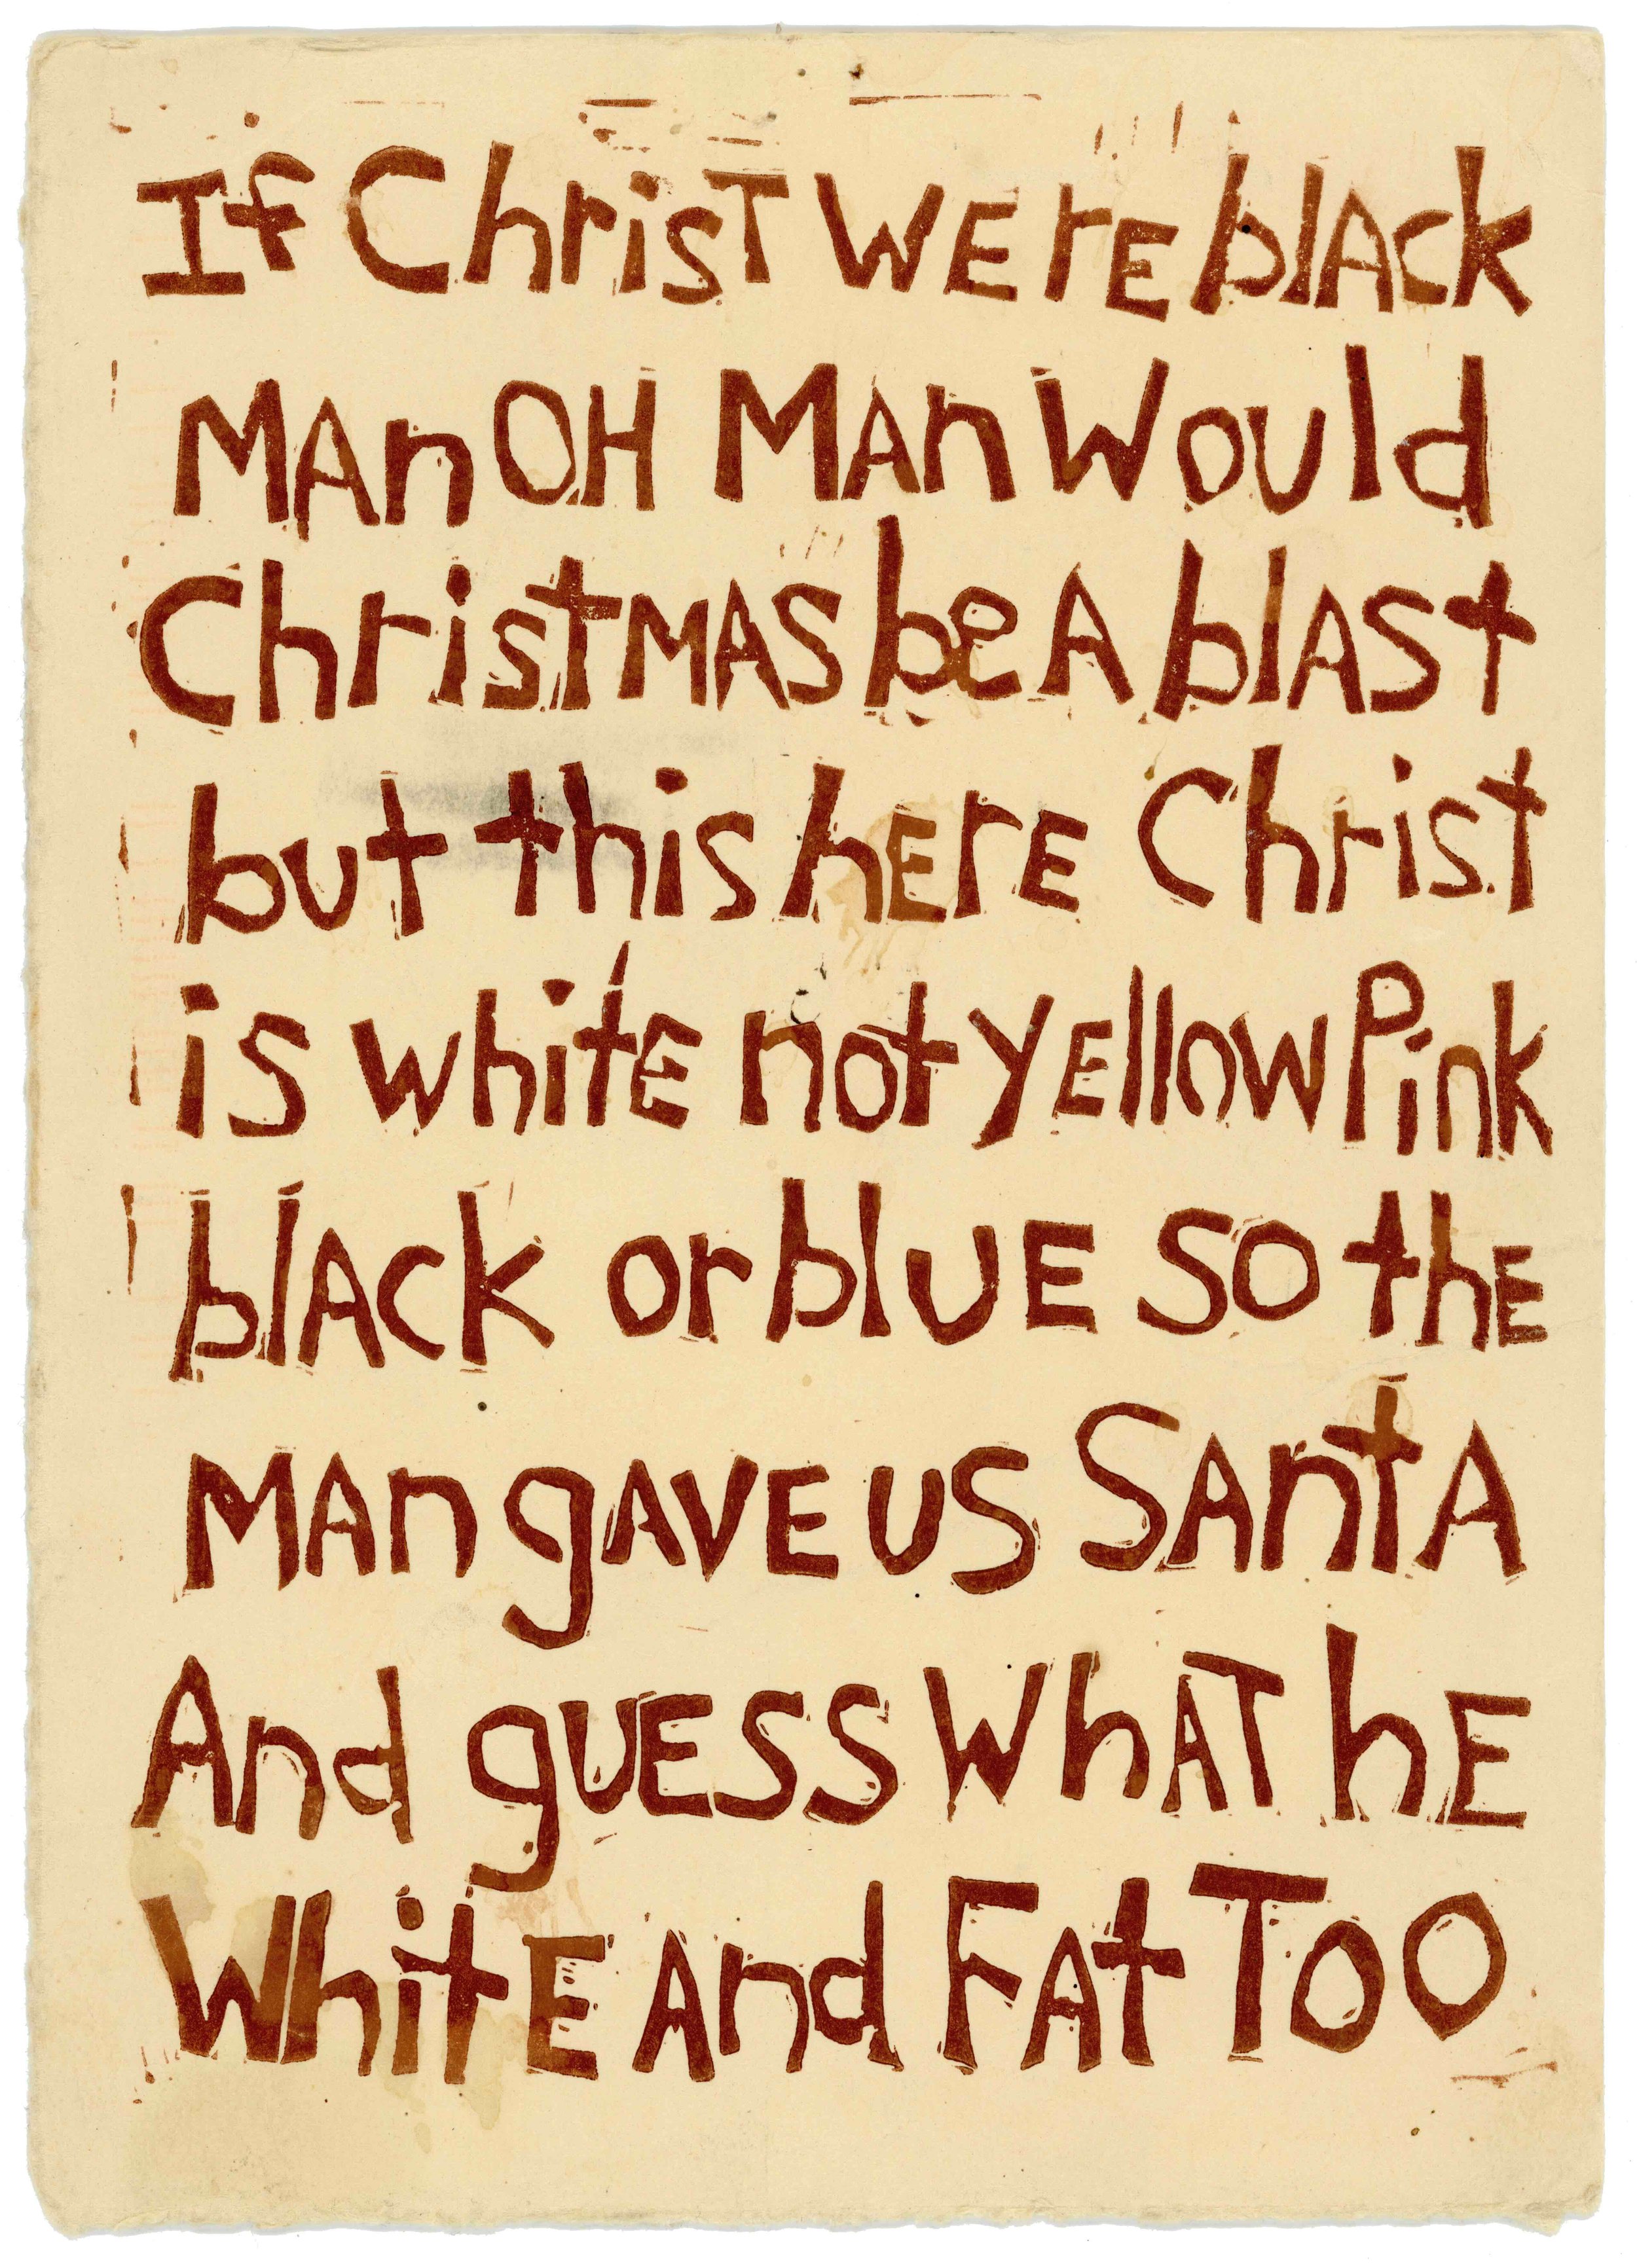 If ChrisT WEre blAck
MAn OH MAn Would
ChristMAS be A blASt
but this hErE Christ
is whitE not yEllow Pink
blAck or bluE so thE
MAn gAVE us SAntA
And guESS WhAT hE
WhitE And FAt Too